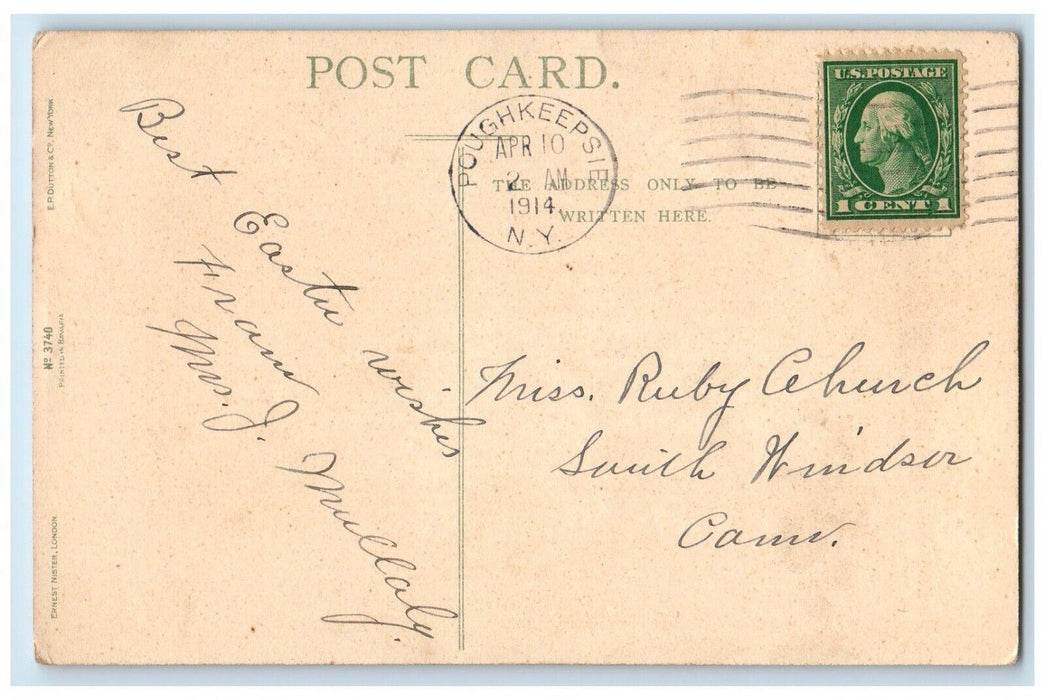 POST CARD.
U.S. POSTAGE
1 CENT 1
POUGHKEEPSIE
APR 10
2 AM
1914
N.Y.
THE ADDRESS ONLY TO BE
WRITTEN HERE.
Best
Easter wishes
From
Mrs. J. Mullaly.
Miss. Ruby Church
South Windsor
Conn.
E.P. DUTTON & CO. NEW YORK
No 3740
PRINTED IN BAVARIA
ERNEST NISTER, LONDON.